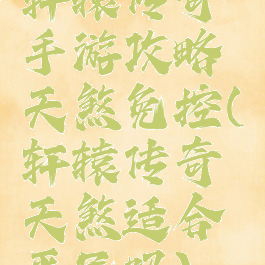 轩辕传奇
手游攻略
天煞免控(
轩辕传奇
天煞适合